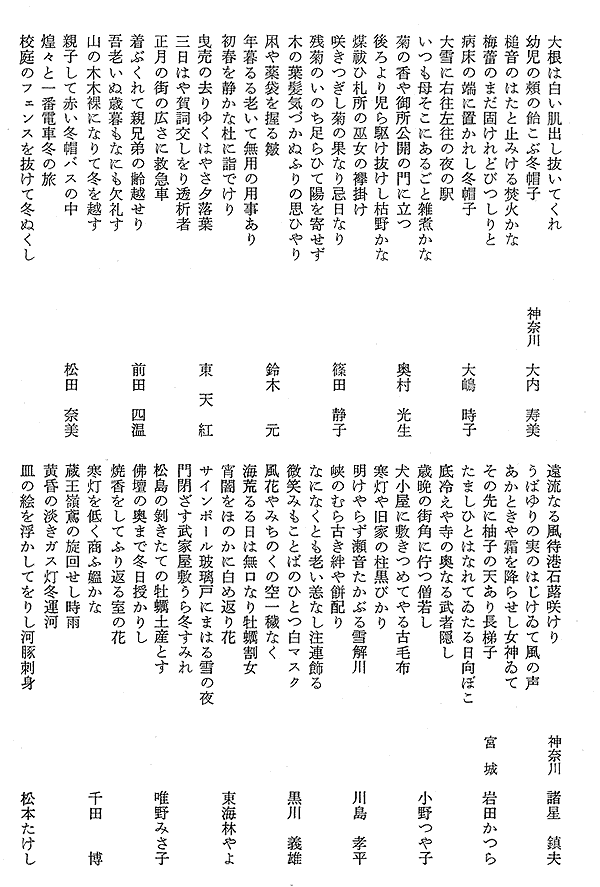 大根は白い肌出し抜いてくれ
幼児の頰の飴こぶ冬帽子
槌音のはたと止みける焚火かな 神奈川 大内 寿美
梅蕾のまだ固けれどびつしりと
病床の端に置かれし冬帽子
大雪に右往左往の夜の駅 大嶋 時子
いつも母そこにあるごと雑煮かな
菊の香や御所公開の門に立つ
後ろより児ら駆け抜けし枯野かな 奥村 光生
煤祓ひ札所の巫女の襷掛け
咲きつぎし菊の果なり忌日なり
残菊のいのち足らひて陽を寄せず 篠田 静子
木の葉髪気づかぬふりの思ひやり
凩や薬袋を握る皺
年暮るる老いて無用の用事あり 鈴木 元
初春を静かな杜に詣でけり
曳売の去りゆくはやさ夕落葉
三日はや賀詞交しをり透析者 東 天紅
正月の街の広さに救急車
着ぶくれて親兄弟の齢越せり
吾老いぬ歳暮もなにも欠礼す 前田 四温
山の木木裸になりて冬を越す
親子して赤い冬帽バスの中
煌々と一番電車冬の旅 松田 奈美
校庭のフェンスを抜けて冬ぬくし
遠流なる風待港石蕗咲けり
うばゆりの実のはじけゐて風の声 神奈川 諸星 鎮夫
あかときや霜を降らせし女神ゐて
その先に柚子の天あり長梯子
たましひとはなれてゐたる日向ぼこ 宮城 岩田かつら
底冷えや寺の奥なる武者隠し
歳晩の街角に佇つ僧若し
犬小屋に敷きつめてやる古毛布 小野つや子
寒灯や旧家の柱黒びかり
明けやらず瀬音たかぶる雪解川
峡のむら古き絆や餅配り 川島 孝平
なになくとも老い恙なし注連飾る
微笑みもことばのひとつ白マスク
風花やみちのくの空一穢なく 黒川 義雄
海荒るる日は無口なり牡蠣割女
宵闇をほのかに白め返り花
サインポール玻璃戸にまはる雪の夜 東海林やよ
門閉ざす武家屋敷うら冬すみれ
松島の剝きたての牡蠣土産とす
佛壇の奥まで冬日授かりし 唯野みさ子
焼香をしてふり返る室の花
寒灯を低く商ふ鰮かな
蔵王嶺鳶の旋回せし時雨 千田 博
黄昏の淡きガス灯冬運河
皿の絵を浮かしてをりし河豚刺身 松本たけし